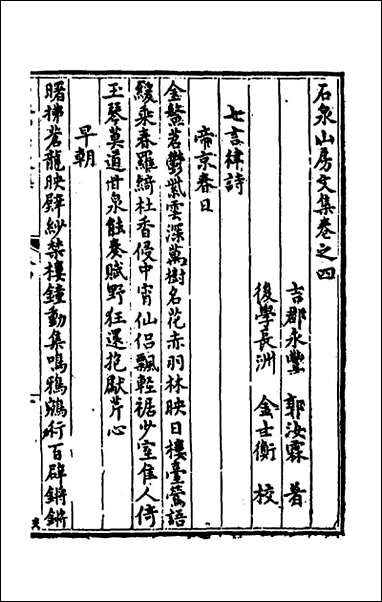 石泉山房文集卷之四
吉郡永豐 郭汝霖 著
後學長洲 金士衡 校
七言律詩
帝京春日
金鰲茗鬱紫雲深萬樹名花赤羽林映日樓臺鶯語
緩乘春羅綺杜香侵中宵仙侶飄輕裾少室隹人倚
玉琴莫道甘泉能奏賦野狂還抱獻芹心
早朝
曙拂蒼龍映辟紗禁樓鐘動集鳴鴉鵷行百辟鏘鏘